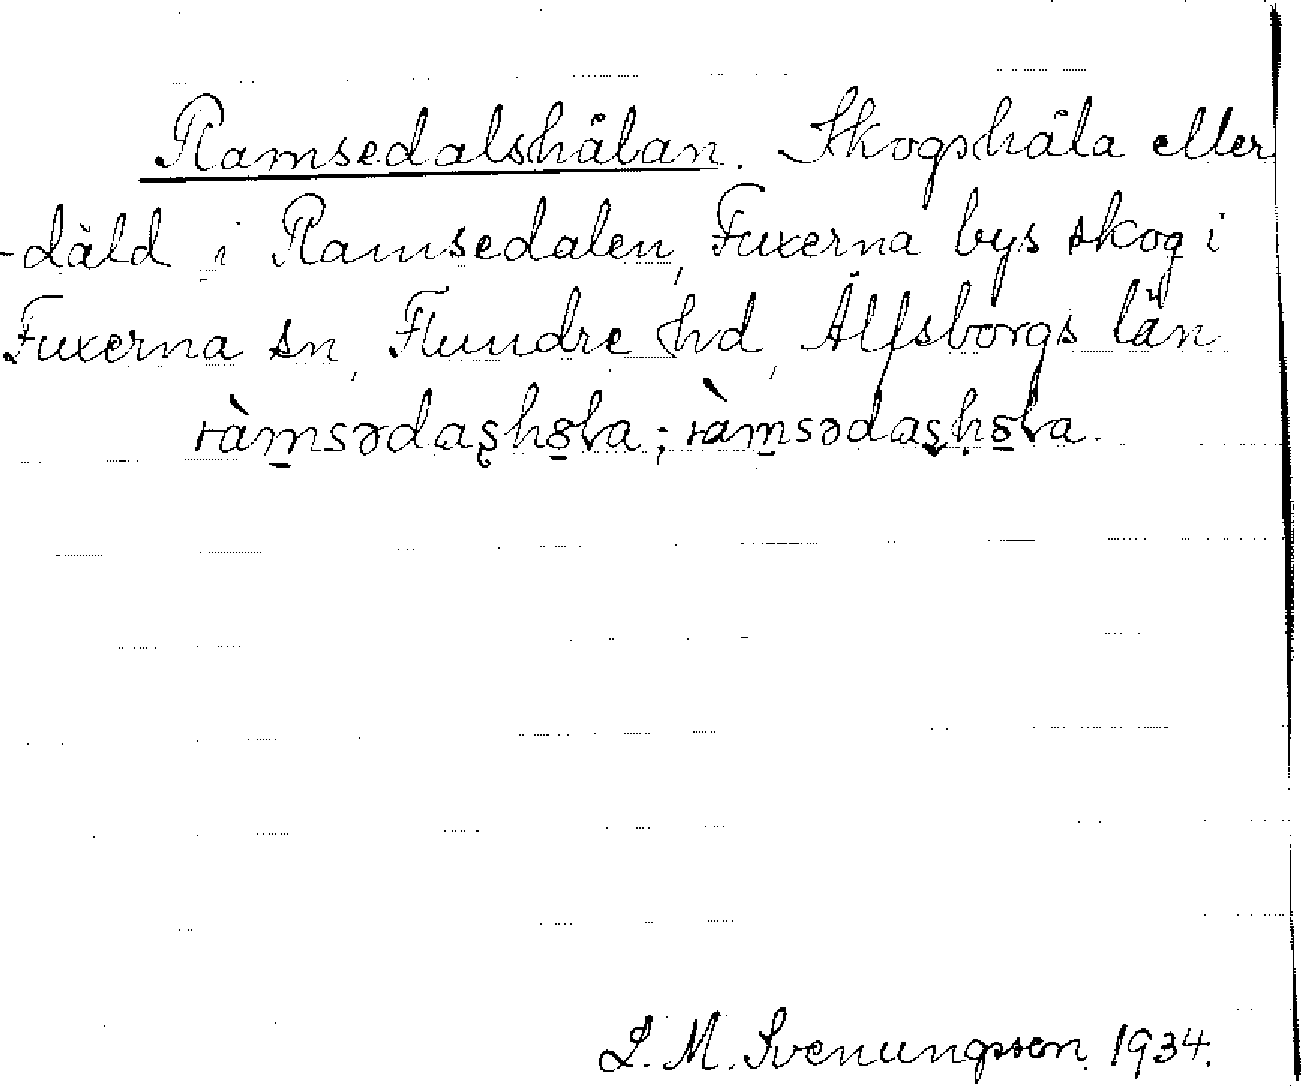 Ramsedalshålan. Skogshåla eller
-däld i Ramsedalen, Fuxerna bys skog i
Fuxerna sn, Flundre hd, Älfsborgs län
L. M. Svenungsson 1934.